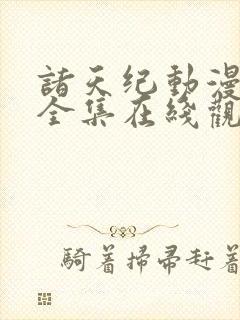 諸天纪動漫
全集在线觀
騎着掃帚赶着